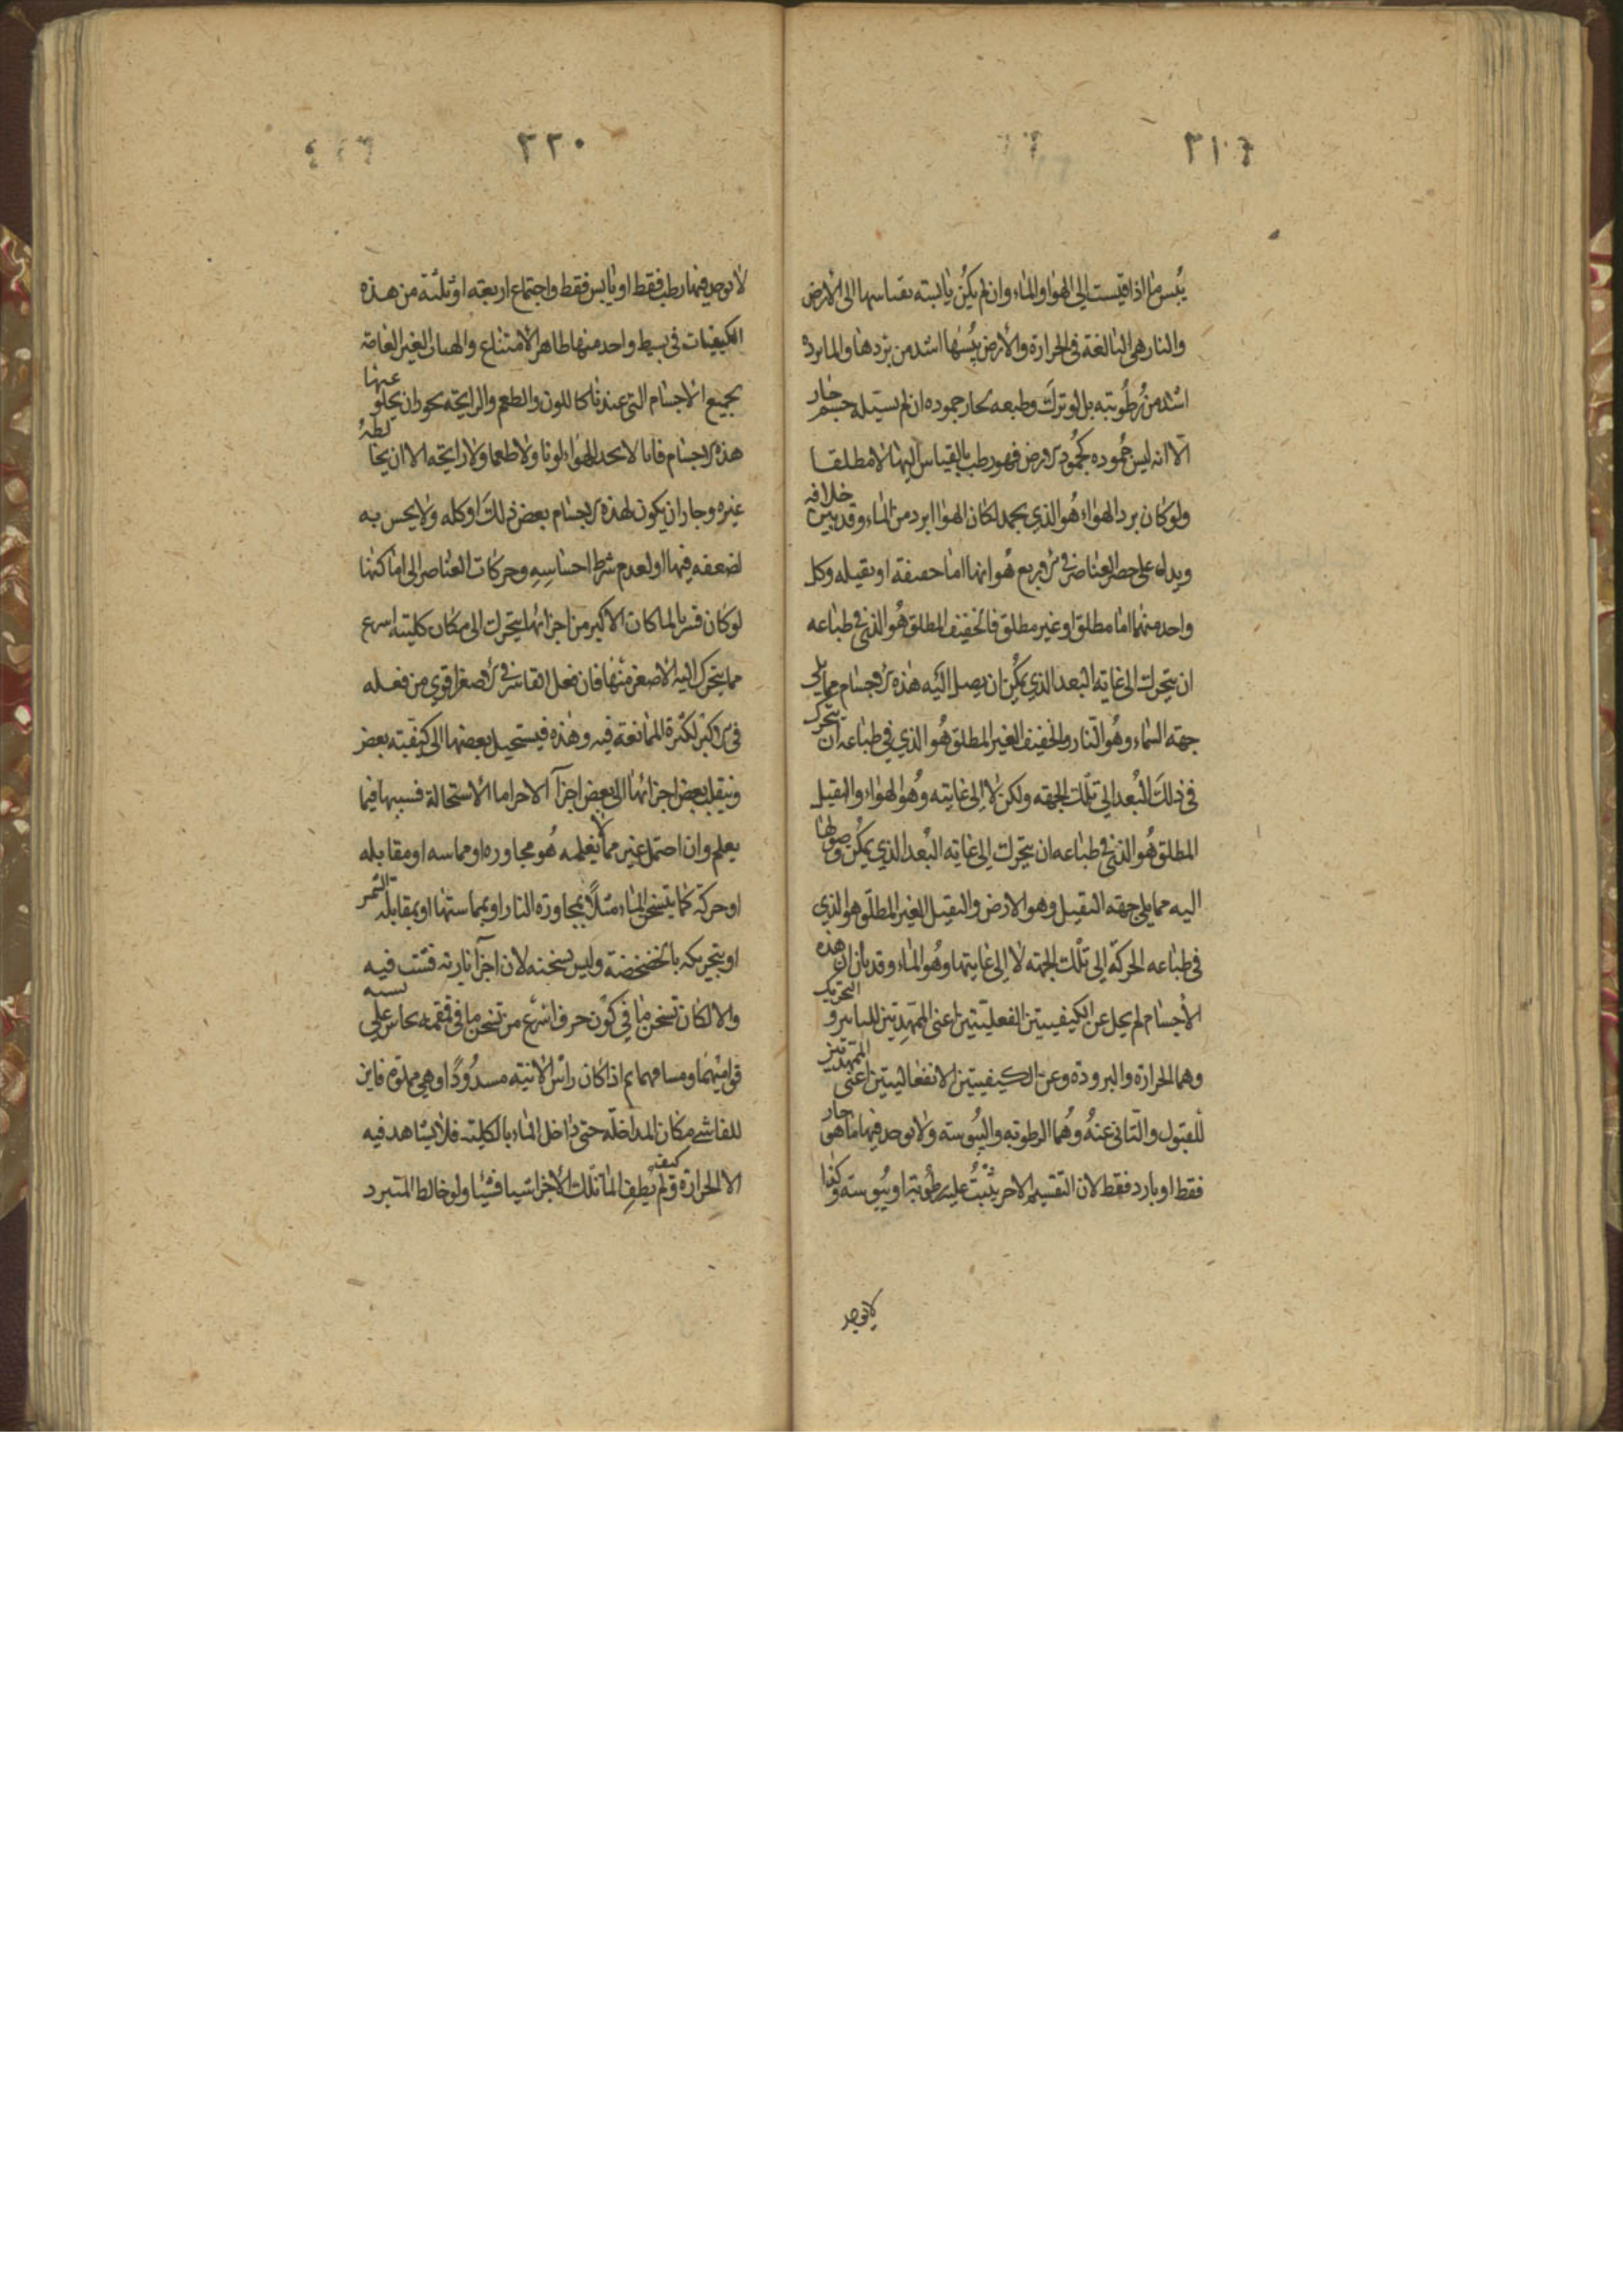 ٣١٩
يُبس ما اذا قيست الى الهوا والماء وان لم يكن يابسة بقياسها الى الارض
والنار هى البالغة فى الحرارة والارض يبسها اشد من بردها والما برده
اشد من رُطُوبته بل لو ترك وطبعه لجاز جموده ان لم يسيله جسم حار
الّا انه ليس جُموده كجُمود الارض فهو رطب بالقياس اليها لا مطلقا
ولو كان برد الهواء هُو الذي يجمد لكان الهوا ابرد من الماء وقد تبين خلافه
ويدل على حصر العناصر فى الاربع هُو انها اما خفيفة او ثقيلة وكل
واحد منهما اما مطلق او غير مطلق فالخفيف المطلق هُو الذي فى طباعه
ان يتحرك الى غاية البعد الذي يمكن ان يصل اليه هذه الاجسام مما يلى
جهة السماء وهُو النار والخفيف الغير المطلق هُو الذي فى طباعه ان يتحرك
فى ذلك البُعد الى تلك الجهة ولكن لا الى غايته وهُو الهواء والثقيل
المطلق هُو الذي فى طباعه ان يتحرك الى غاية البُعد الذي يمكن وصولها
اليه مما يلى جهة الثقيل وهو الارض والثقيل الغير المطلق هو الذي
فى طباعه الحركة الى تلك الجهة لا الى غايتها وهُو الماء وقد بان ان هذه
الاجسام لم يخل عن الكيفيتين الفعليتين اعنى الممهدتين للتاثير و التحريك
وهما الحرارة والبرودة وعن الكيفيتين الانفعاليتين اعنى الممهدتين
للقبول والتانى عنهُ وهُما الرطوبة واليبُوسة ولا يوجد فيها ما هو حار
فقط او بارد فقط لان التقسيم الاخر يثبت عليه رطُوبة او يبُوسة وكذا
لا يوجد
٣٢٠
لا يوجد فيها رطب فقط او يابس فقط واجتماع اربعة او ثلثة من هذه
الكيفيات فى بسيط واحد منها ظاهر الامتناع والهيات الغير العامة
بجميع الاجسام التى عندنا كاللون والطعم والرايحة يجوز ان يخلو عنها
هذه الاجسام فانا لا نجد للهواء لونا ولا طعما ولا رايحة الا ان يخالطه
غيره وجاز ان يكون لهذه الاجسام بعض ذلك او كله ولا يحس به
لضعفه فيها او لعدم شرط احساسه وحركات العناصر الى اماكنها
لو كان قسريا لما كان الاكبر من اجزائها يتحرك الى مكان كليته اسرع
مما يتحرك اليه الاصغر منها فان فعل القاسر فى الاصغر اقوى من فعله
فى الاكبر لكثرة الممانعة فيه وهذه فيستحيل بعضها الى كيفية بعض
وينقلب بعض اجزائها الى بعض اجزآ الاخر اما الاستحالة فسببها فيما
يعلم وان احتمل غير مما لا يعلمه هُو مجاوره او مماسه او مقابله
او حركة كما يتسخن الماء مثلًا بمجاورة النار او بمماستها او بمقابلة الشمس
او بتحريكه بالخضخضة وليس تسخنه لان اجزآ نارية فشت فيه
والا لكان تسخن ما فى كوز خزف اسرع من تسخن ما فى قمقمة نحاس على نسبة
قواميهما ومسامهما ثم اذا كان راس الانية مسدُودًا وهى مملوة فاين
للفاشى مكان المداخلة حتى داخل الماء بالكلية فلا يشاهد فيه
الا الحرارة وكيف لم يُطفِ الما تلك الاجزا شيا فشيئا ولو خالط المتبرد